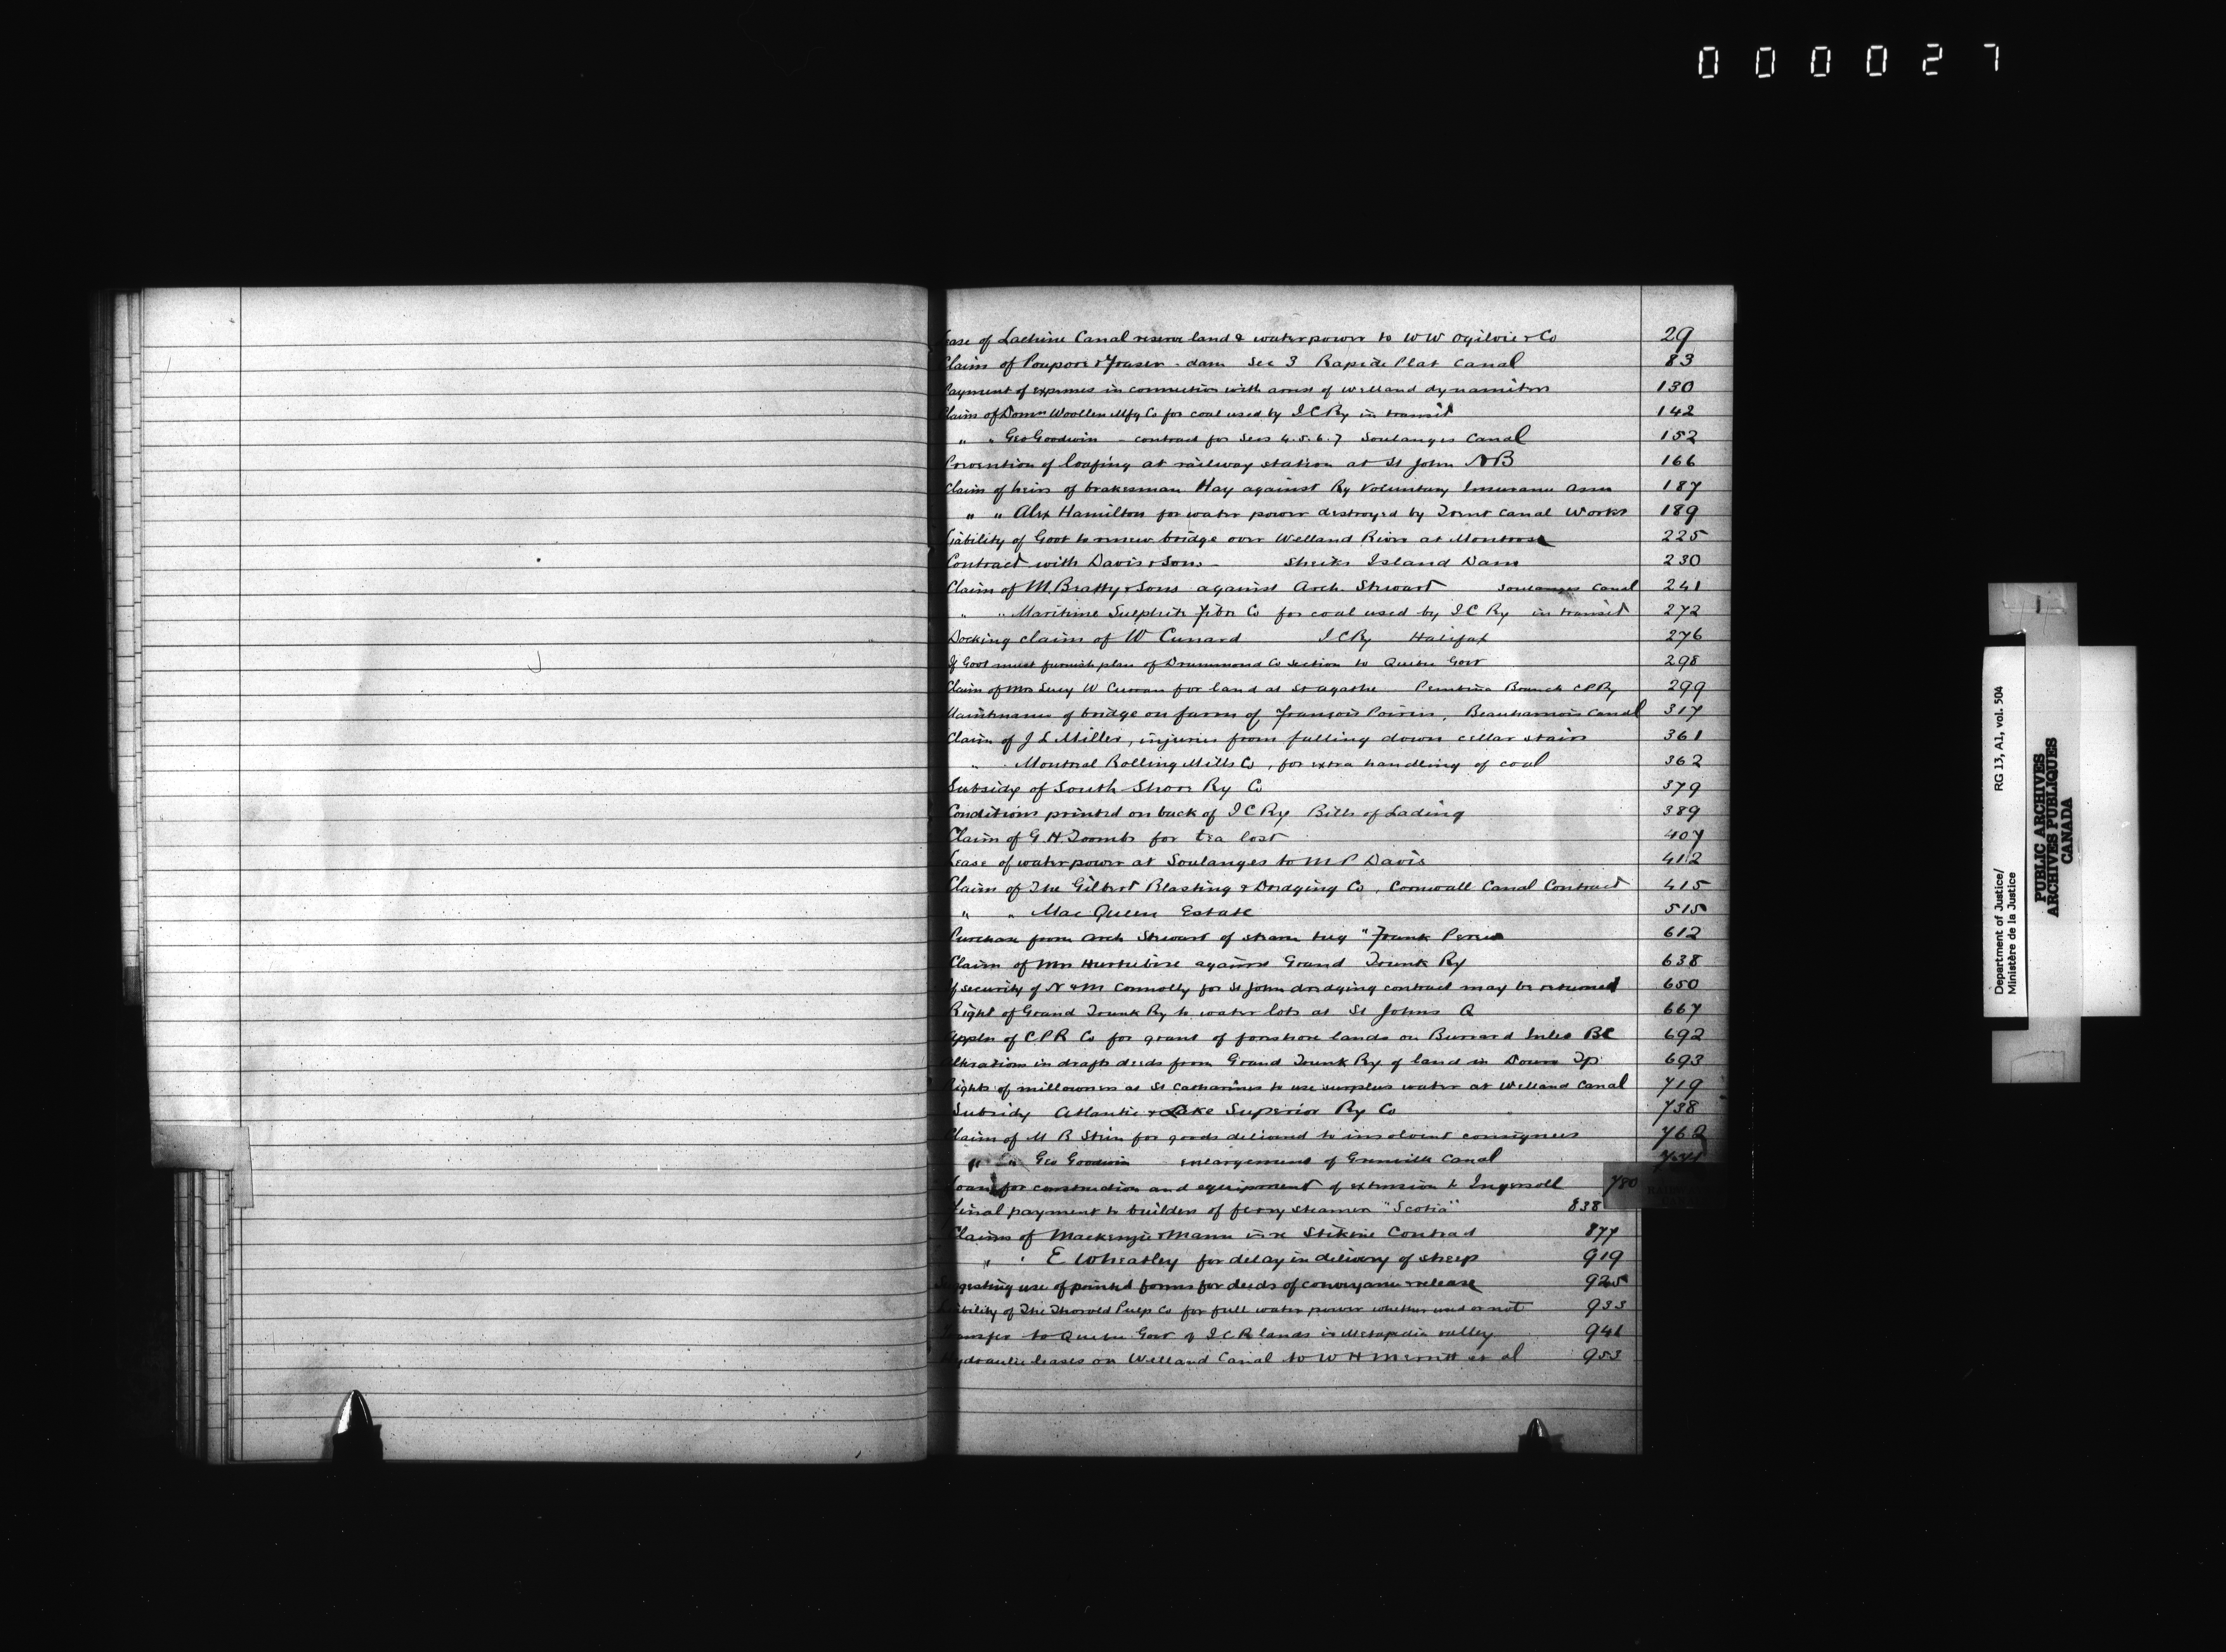 000027
Lease of Lachine Canal reserve land & waterpower to W W Ogilvie & Co 29
Claim of Poupore & Fraser - dam Sec 3 Rapide Plat Canal 83
Payment of expenses in connection with arrest of Welland dynamiters 130
Claim of Domn Woollen Mfg Co for coal used by I C Ry in transit 142
" " Geo Goodwin - contract for Secs 4.5.6.7 Soulanges Canal 152
Prevention of loafing at railway station at St John NB 166
Claim of heirs of brakesman Hay against Ry Voluntary Insurance Assn 187
" " Alex Hamilton for water power destroyed by Trent Canal Works 189
Liability of Govt to renew bridge over Welland River at Montrose 225
Contract with Davis & Sons - Sheiks Island Dam 230
Claim of M. Beatty & Sons against Arch. Stewart Soulanges Canal 241
" " Maritime Sulphite Fibre Co for coal used by I C Ry in transit 272
Docking claim of W Cunard I C Ry Halifax 276
If Govt must furnish plan of Drummond Co section to Quebec Govt 298
Claim of Mrs Lucy W Curran for land at St Agathe Pembina Branch C P Ry 299
Maintenance of bridge on farm of François Poirier, Beauharnois Canal 317
Claim of J L Miller, injuries from falling down cellar stairs 361
" " Montreal Rolling Mills Co, for extra handling of coal 362
Subsidy of South Shore Ry Co 379
Conditions printed on back of I C Ry Bills of Lading 389
Claim of G. H. Toombs for tea lost 407
Lease of waterpower at Soulanges to M P Davis 412
Claim of The Gilbert Blasting & Dredging Co, Cornwall Canal Contract 415
" " Mac Queen Estate 515
Purchase from Arch Stewart of steam tug "Frank Perew 612
Claim of Mrs Hurtubise against Grand Trunk Ry 638
If security of N & M Connolly for St John dredging contract may be returned 650
Right of Grand Trunk Ry to water lots at St Johns Q 667
Appln of C.P.R Co for grant of foreshore lands on Burrard Inlet BC 692
Alterations in draft deeds from Grand Trunk Ry of land in Tp 693
Rights of millowners at St Catharines to use surplus water at Welland Canal 719
Subsidy Atlantic & Lake Superior Ry Co 738
Claim of M B for goods delivered to insolvent consignees 762
" " Geo Goodwin enlargement of Grenville Canal
for construction and equipment of extension to Ingersoll 780
Final payment to builders of ferry steamer "Scotia" 838
Claims of Mackenzie & Mann in re Stikine Contract 877
" " E Wheatley for delay in delivery of sheep 919
Suggesting use of printed forms for deeds of conveyance & release 925
Liability of The Thorold Pulp Co for full water power whether used or not 933
Transfer to Quebec Govt of I.C.R lands in Metapedia valley 941
Hydraulic leases on Welland Canal to W H Merritt et al 953
Department of Justice/ RG 13, A1, vol. 504
Ministère de la Justice
PUBLIC ARCHIVES
ARCHIVES PUBLIQUES
CANADA